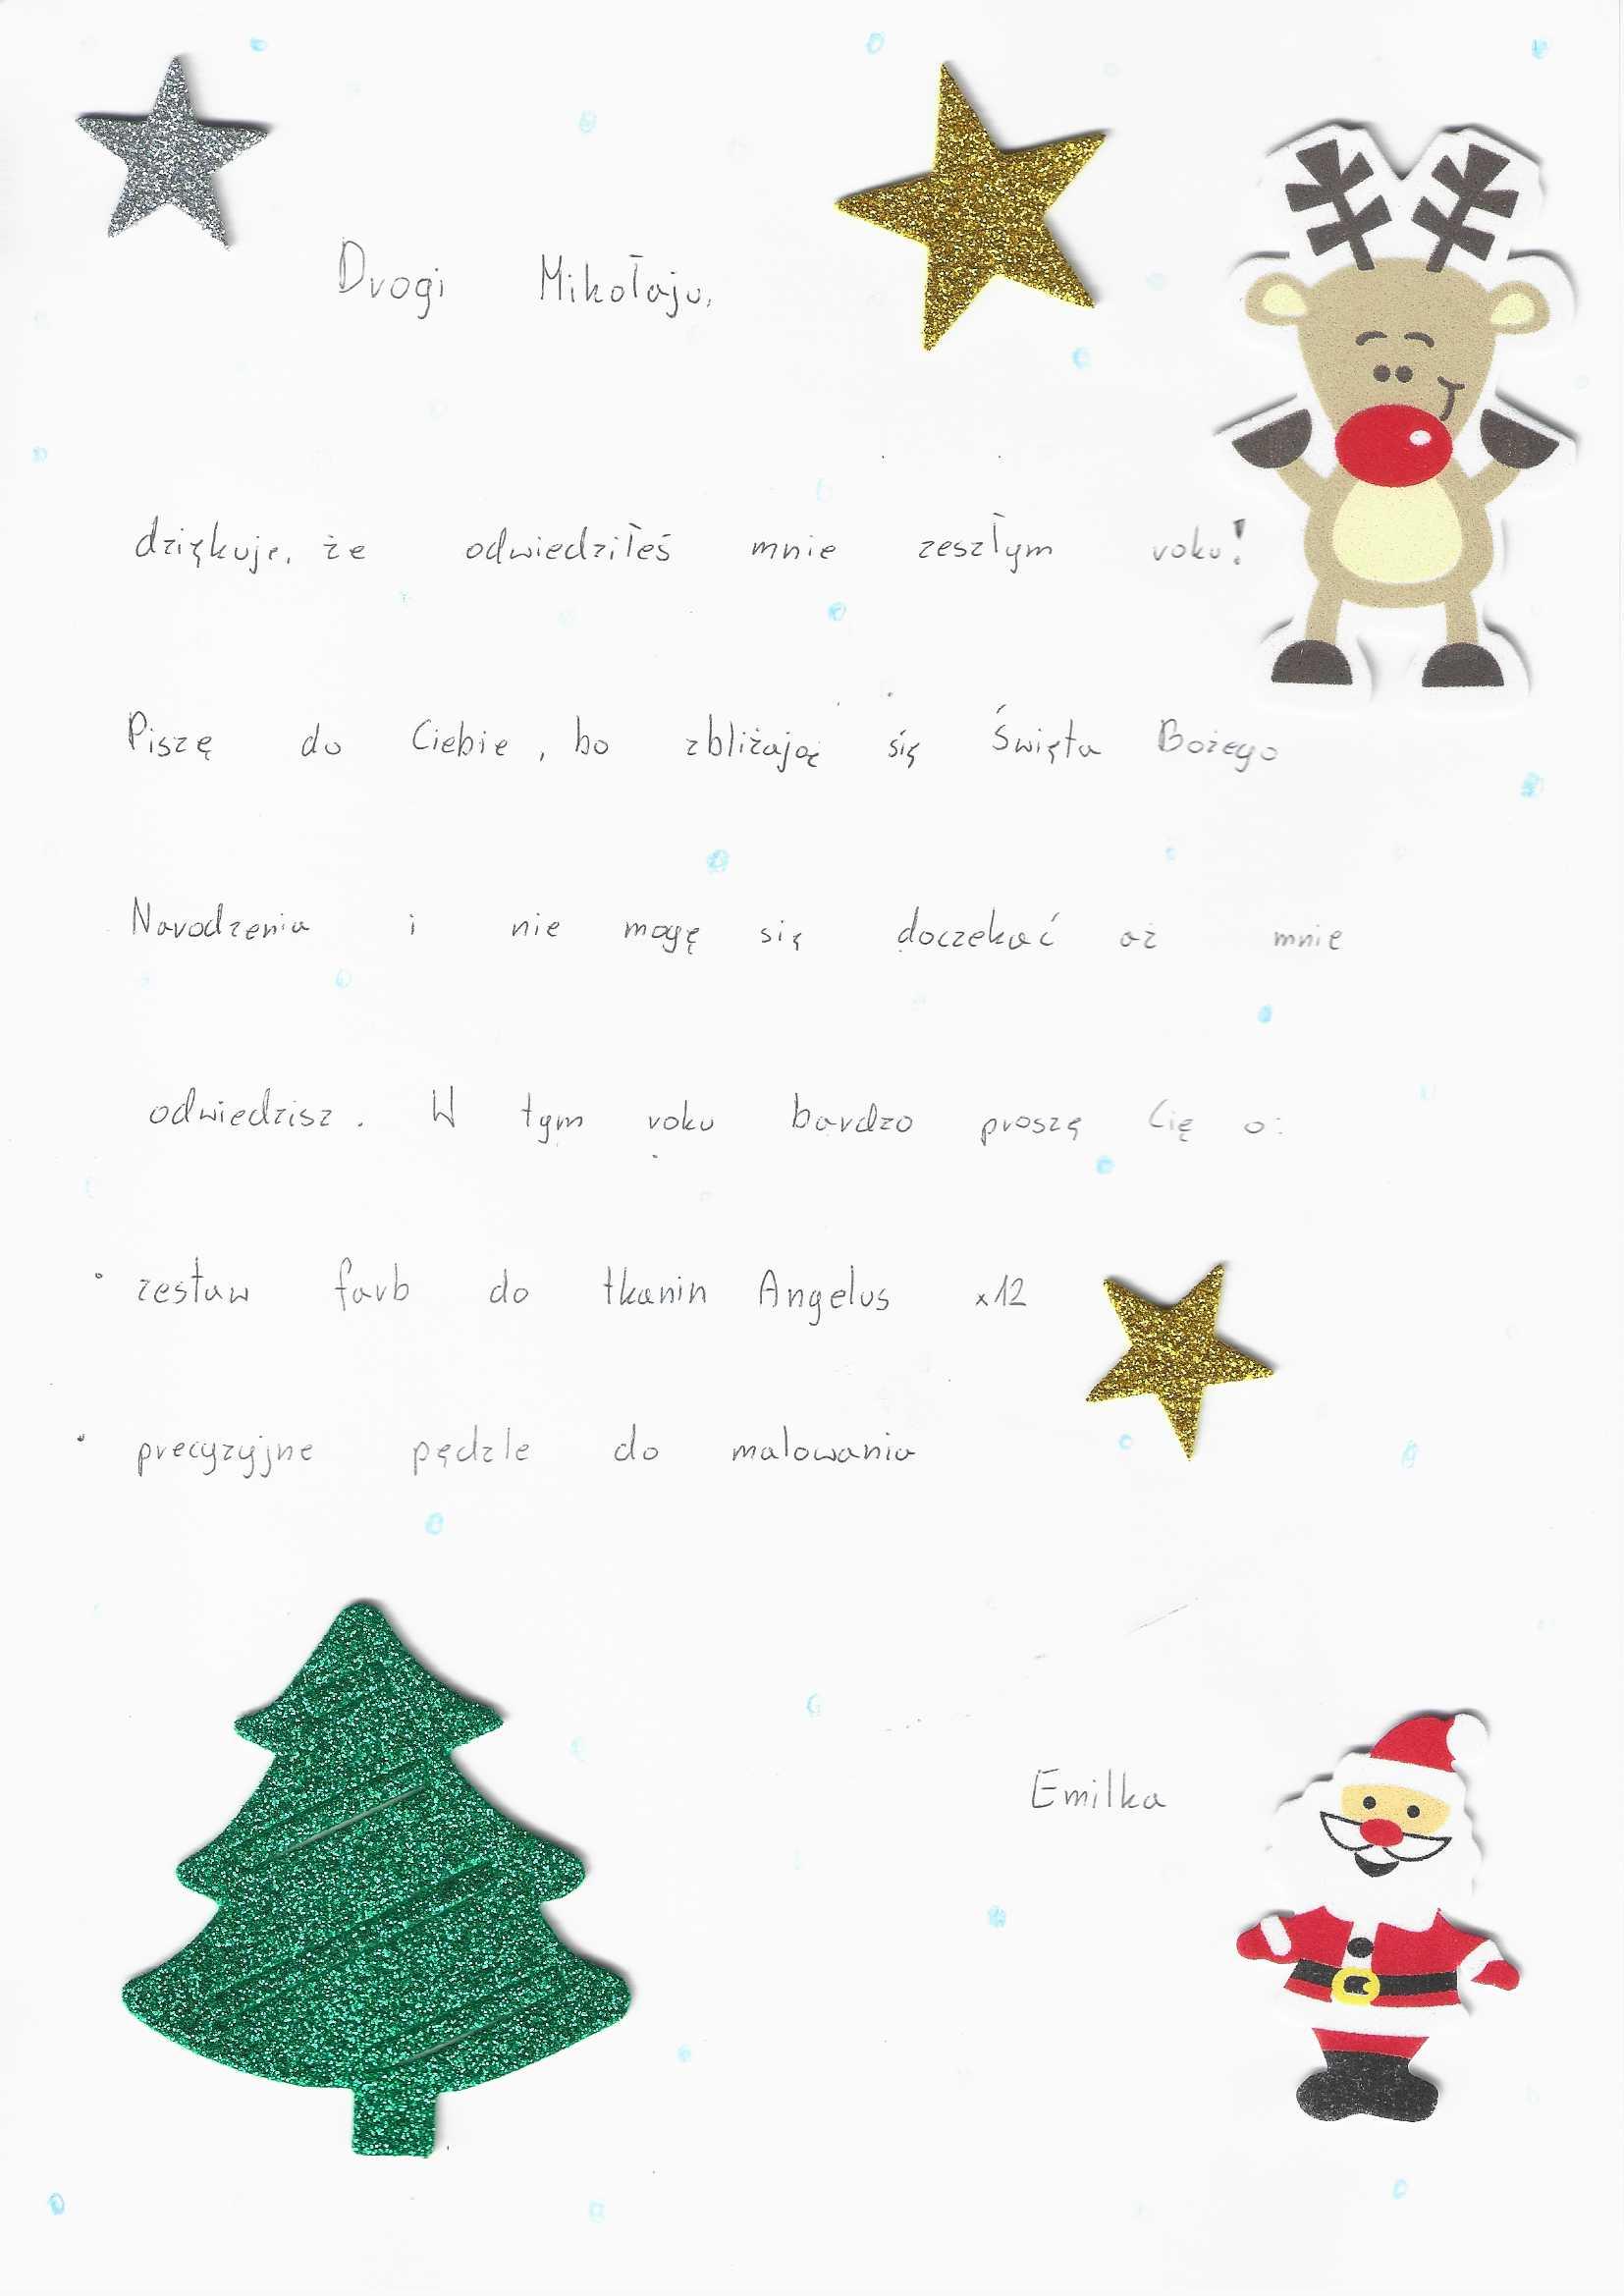 Drogi Mikołaju,
dziękuję, że odwiedziłeś mnie zeszłym roku!
Piszę do Ciebie, bo zbliżają się Święta Bożego
Narodzenia i nie mogę się doczekać aż mnie
odwiedzisz. W tym roku bardzo proszę Cię o:
• zestaw farb do tkanin Angelus x12
• precyzyjne pędzle do malowania
Emilka